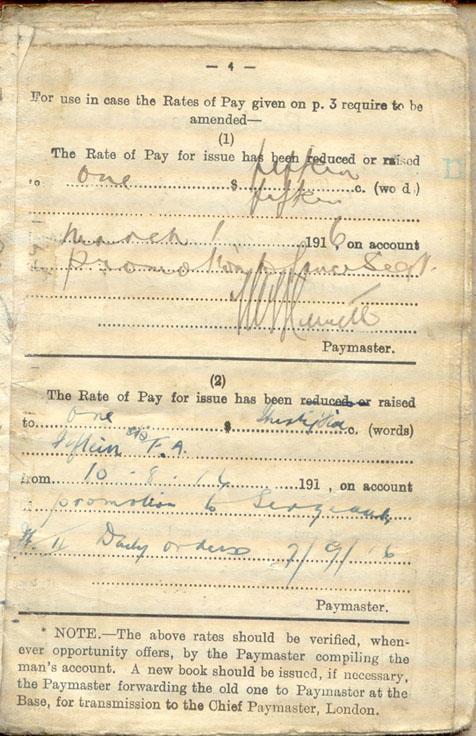 — 4 —
For use in case the Rates of Pay given on p. 3 require to be
amended—
(1)
The Rate of Pay for issue has been reduced or raised
to one $ fifteen c. (wo d.)
fifteen
March 1 1916, on account
Promotion Lance Sergt.
Paymaster.
(2)
The Rate of Pay for issue has been reduced or raised
to one $ c. (words)
fifteen F.A.
from 10-8-16 191 , on account
promotion to Sergeant
Daily orders 7/9/16
Paymaster.
* NOTE.—The above rates should be verified, when-
ever opportunity offers, by the Paymaster compiling the
man's account. A new book should be issued, if necessary,
the Paymaster forwarding the old one to Paymaster at the
Base, for transmission to the Chief Paymaster, London.